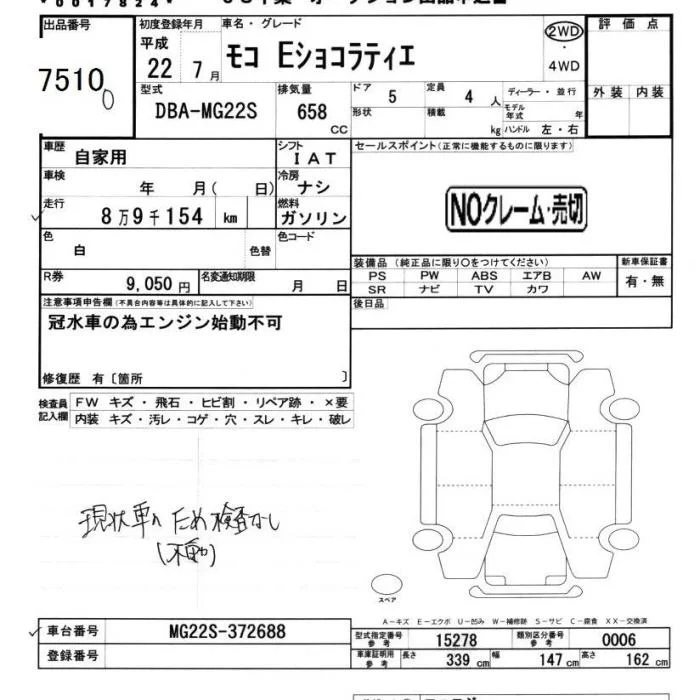 0017824
出品番号
7510
初度登録年月
平成
22 7月
車名・グレード
モコ Eショコラティエ
2WD
・
4WD
評価点
外装 内装
型式
DBA-MG22S
排気量
658
CC
ドア
5
定員
4 人
形状
積載
kg
ディーラー・並行
モデル年式 年
ハンドル 左・右
車歴
自家用
シフト
IAT
車検
年 月( 日)
冷房
ナシ
走行
8万9千154 km
燃料
ガソリン
色
白
色替
色コード
R券
9,050円
名変通知期限
月 日
セールスポイント(正常に機能するものに限ります)
NOクレーム・売切
装備品(純正品に限り〇をつけてください)
PS PW ABS エアB AW
SR ナビ TV カワ
新車保証書
有・無
後日品
注意事項申告欄(不具合内容等は具体的に記入して下さい)
冠水車の為エンジン始動不可
修復歴 有〔箇所 〕
検査員記入欄
FW キズ・飛石・ヒビ割・リペア跡・×要
内装 キズ・汚レ・コゲ・穴・スレ・キレ・破レ
現状車のため検査なし
(不動)
スペア
A-キズ E-エクボ U-凹み W-補修跡 S-サビ C-腐食 XX-交換済
車台番号
MG22S-372688
登録番号
型式指定番号
参考
15278
類別区分番号
参考
0006
車庫証明用
参考
長さ 339 cm 幅 147 cm 高さ 162 cm